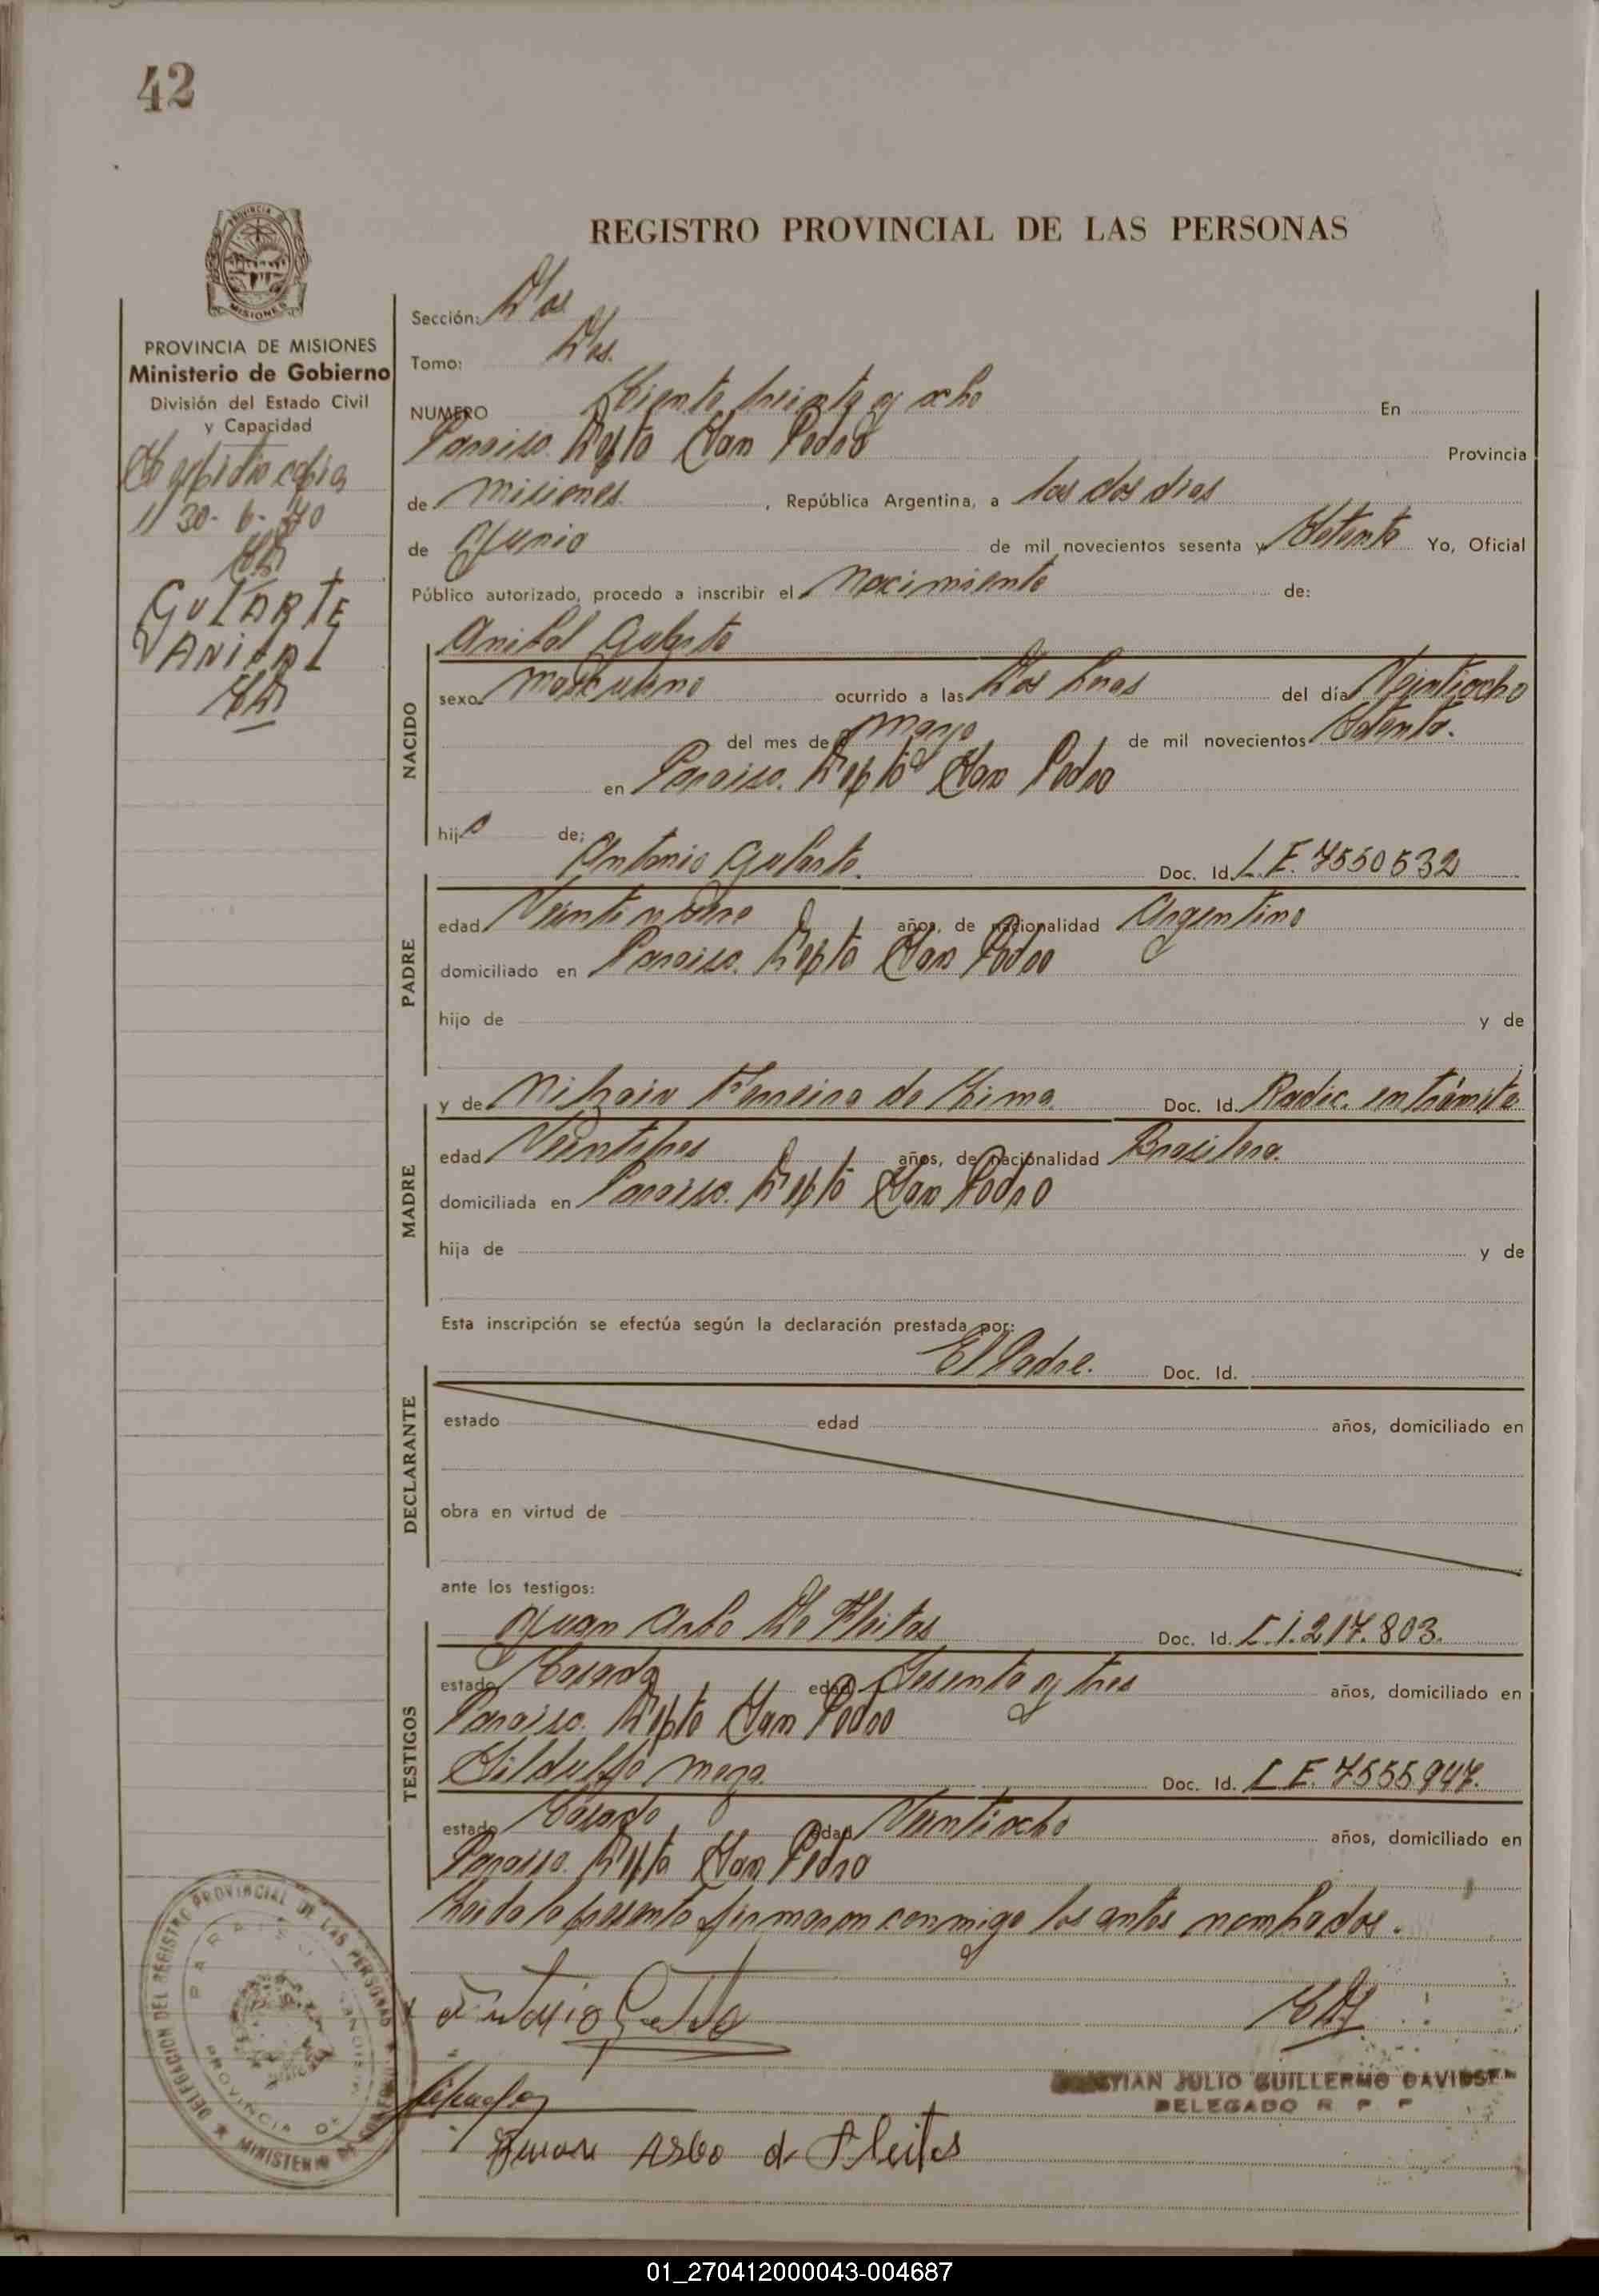 42
REGISTRO PROVINCIAL DE LAS PERSONAS
MISIONES
PROVINCIA DE MISIONES
Ministerio de Gobierno
División del Estado Civil
y Capacidad
copia
30-6-70
GULARTE
ANIBAL
Sección: Dos
Tomo: Dos.
NUMERO Ciento treinta y ocho En
Paraiso. Depto San Pedro Provincia
de Misiones. , República Argentina, a los dos dias
de Junio de mil novecientos sesenta y Setenta Yo, Oficial
Público autorizado, procedo a inscribir el Nacimiento de:
NACIDO
Anibal Gularte
sexo Masculino ocurrido a las Dos horas del día Veintiocho
del mes de Mayo de mil novecientos Setenta.
en Paraiso. Depto San Pedro
hijo de:
PADRE
Antonio Gularte. Doc. Id. L.E. 7550532
edad Veintinueve años, de nacionalidad Argentino
domiciliado en Paraiso. Depto San Pedro
hijo de y de
MADRE
y de Ferreira de Lima. Doc. Id. Radic. en trámite
edad Veintitres años, de nacionalidad Brasilera.
domiciliada en Paraiso. Depto San Pedro
hija de y de
Esta inscripción se efectúa según la declaración prestada por:
DECLARANTE
El Padre. Doc. Id.
estado edad años, domiciliado en
obra en virtud de
ante los testigos:
TESTIGOS
Juan Arbo De Fleitas Doc. Id. C.I. 217.803.
estado Casado edad Sesenta y tres años, domiciliado en
Paraiso. Depto San Pedro
Meza. Doc. Id. L E. 7555947.
estado Casado edad Veintiocho años, domiciliado en
Paraiso. Depto San Pedro
Leida la presente firmaron conmigo los antes nombrados.
DELEGACION DEL REGISTRO PROVINCIAL DE LAS PERSONAS
PARAISO
PROVINCIA DE
MINISTERIO DE
JULIO GUILLERMO DAVIDSEN
DELEGADO R P P
Juan Arbo de Fleitas
01_270412000043-004687